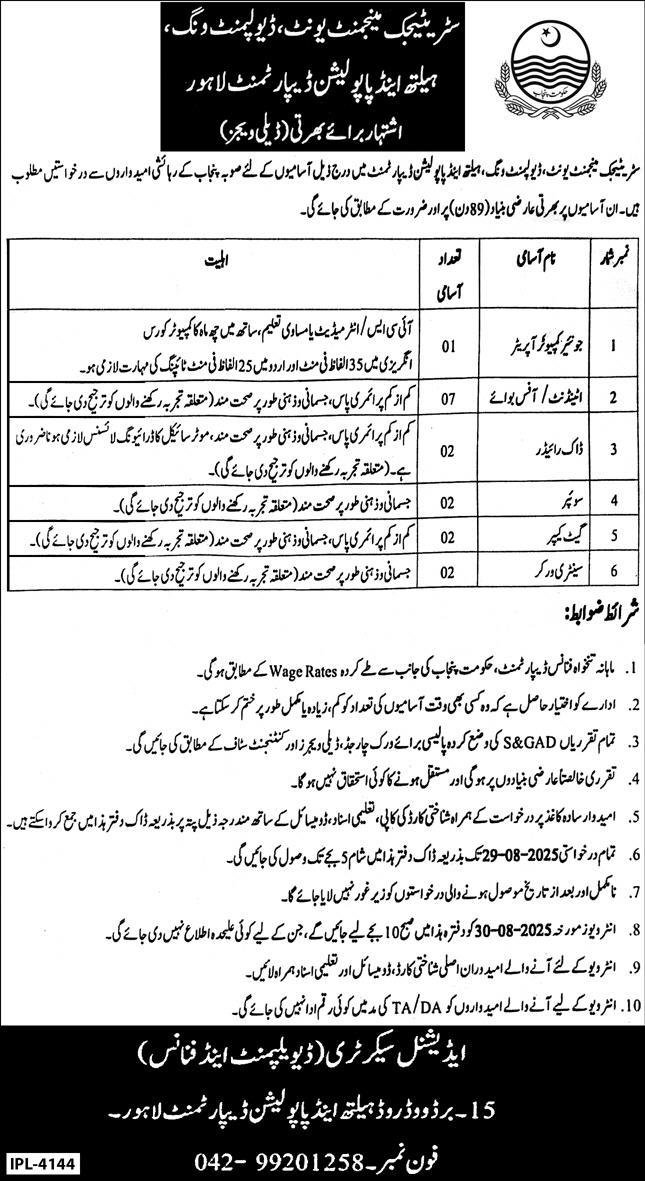 سٹریٹیجک مینجمنٹ یونٹ، ڈیولپمنٹ ونگ،
ہیلتھ اینڈ پاپولیشن ڈیپارٹمنٹ لاہور
اشتہار برائے بھرتی (ڈیلی ویجز)
حکومت پنجاب
سٹریٹیجک مینجمنٹ یونٹ، ڈیولپمنٹ ونگ، ہیلتھ اینڈ پاپولیشن ڈیپارٹمنٹ میں درج ذیل آسامیوں کے لئے صوبہ پنجاب کے رہائشی امیدواروں سے درخواستیں مطلوب
ہیں۔ ان آسامیوں پر بھرتی عارضی بنیاد (89 دن) پر اور ضرورت کے مطابق کی جائے گی۔
نمبر شمار نام آسامی تعداد آسامی اہلیت
1 جونیئر کمپیوٹر آپریٹر 01 آئی سی ایس/انٹرمیڈیٹ یا مساوی تعلیم، ساتھ میں چھ ماہ کا کمپیوٹر کورس
انگریزی میں 35 الفاظ فی منٹ اور اردو میں 25 الفاظ فی منٹ ٹائپنگ کی مہارت لازمی ہو۔
2 اٹینڈنٹ/آفس بوائے 07 کم از کم پرائمری پاس، جسمانی و ذہنی طور پر صحت مند (متعلقہ تجربہ رکھنے والوں کو ترجیح دی جائے گی)۔
3 ڈاک رائیڈر 02 کم از کم پرائمری پاس، جسمانی و ذہنی طور پر صحت مند، موٹر سائیکل کا ڈرائیونگ لائسنس لازمی ہونا ضروری
ہے۔ (متعلقہ تجربہ رکھنے والوں کو ترجیح دی جائے گی)۔
4 سوئپر 02 جسمانی و ذہنی طور پر صحت مند (متعلقہ تجربہ رکھنے والوں کو ترجیح دی جائے گی)۔
5 گیٹ کیپر 02 کم از کم پرائمری پاس، جسمانی و ذہنی طور پر صحت مند (متعلقہ تجربہ رکھنے والوں کو ترجیح دی جائے گی)۔
6 سینٹری ورکر 02 جسمانی و ذہنی طور پر صحت مند (متعلقہ تجربہ رکھنے والوں کو ترجیح دی جائے گی)۔
شرائط ضوابط:
1. ماہانہ تنخواہ فنانس ڈیپارٹمنٹ، حکومت پنجاب کی جانب سے طے کردہ Wage Rates کے مطابق ہوگی۔
2. ادارے کو اختیار حاصل ہے کہ وہ کسی بھی وقت آسامیوں کی تعداد کو کم، زیادہ یا مکمل طور پر ختم کر سکتا ہے۔
3. تمام تقرریاں S&GAD کی وضع کردہ پالیسی برائے ورک چارجڈ، ڈیلی ویجز اور کنٹنجنٹ سٹاف کے مطابق کی جائیں گی۔
4. تقرری خالصتاً عارضی بنیادوں پر ہوگی اور مستقل ہونے کا کوئی استحقاق نہیں ہوگا۔
5. امیدوار سادہ کاغذ پر درخواست کے ہمراہ شناختی کارڈ کی کاپی، تعلیمی اسناد، ڈومیسائل کے ساتھ مندرجہ ذیل پتہ پر بذریعہ ڈاک دفتر ہذا میں جمع کروا سکتے ہیں۔
6. تمام درخواستیں 29-08-2025 تک بذریعہ ڈاک دفتر ہذا میں شام 5 بجے تک وصول کی جائیں گی۔
7. نامکمل اور بعد از تاریخ موصول ہونے والی درخواستوں کو زیر غور نہیں لایا جائے گا۔
8. انٹرویوز مورخہ 30-08-2025 کو دفتر ہذا میں صبح 10 بجے لیے جائیں گے، جن کے لیے کوئی علیحدہ اطلاع نہیں دی جائے گی۔
9. انٹرویو کے لئے آنے والے امیدواران اصلی شناختی کارڈ، ڈومیسائل اور تعلیمی اسناد ہمراہ لائیں۔
10. انٹرویو کے لیے آنے والے امیدواروں کو TA/DA کی مد میں کوئی رقم ادا نہیں کی جائے گی۔
ایڈیشنل سیکرٹری (ڈیویلپمنٹ اینڈ فنانس)
15۔ برڈ ووڈ روڈ ہیلتھ اینڈ پاپولیشن ڈیپارٹمنٹ لاہور۔
فون نمبر۔ 042- 99201258
IPL-4144